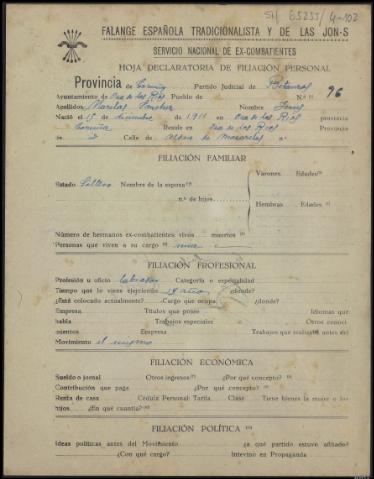 SH 65255/4-102
FALANGE ESPAÑOLA TRADICIONALISTA Y DE LAS JON-S
SERVICIO NACIONAL DE EX-COMBATIENTES
HOJA DECLARATORIA DE FILIACIÓN PERSONAL
Provincia de Coruña Partido Judicial de Betanzos
Ayuntamiento de Oza de los Ríos Pueblo de N.º 96
Apellidos Sánchez Nombre José
Nació el 15 de diciembre de 1911 en Oza de los Ríos provincia
Coruña Reside en Oza de los Ríos Provincia
de Calle de Aldea de n.º
FILIACIÓN FAMILIAR
Varones Edades
Estado Soltero Nombre de la esposa
n.º de hijos
Hembras Edades
Número de hermanos ex-combatientes vivos muertos
Personas que viven a su cargo
FILIACIÓN PROFESIONAL
Profesión u oficio labrador Categoría o especialidad
Tiempo que lo viene ejerciendo años ¿dónde?
¿Está colocado actualmente? Cargo que ocupa ¿dónde?
Empresa Títulos que posee Idiomas que
habla Trabajos especiales Otros conoci
mientos Empresa Trabajos que realizó antes del
Movimiento el mismo
FILIACIÓN ECONÓMICA
Sueldo o jornal Otros ingresos ¿Por qué concepto?
Contribución que paga ¿Por qué concepto?
Renta de casa Cédula Personal: Tarifa Clase Tiene bienes la mujer o los
hijos ¿En qué cuantía?
FILIACIÓN POLÍTICA
Ideas políticas antes del Movimiento ¿a qué partido estuvo afiliado?
¿Con qué cargo? Intervino en Propaganda